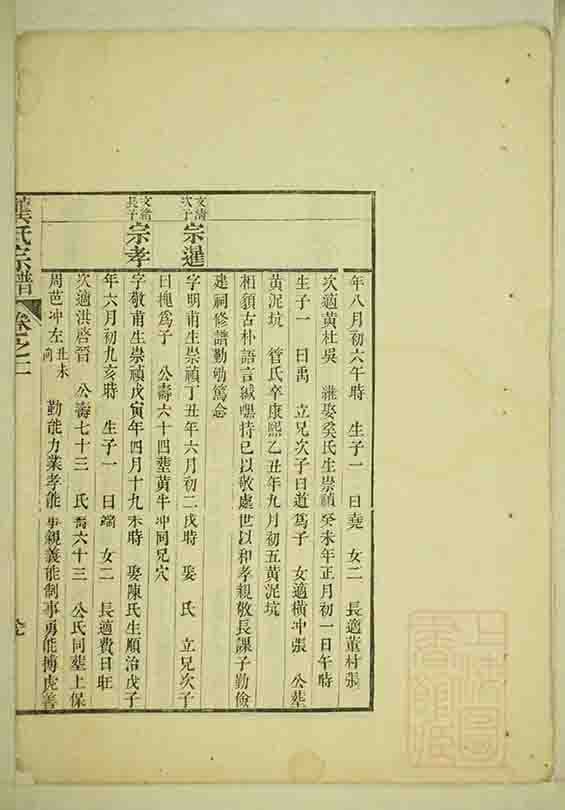 年八月初六午時 生子一 曰堯 女二 長適董村張
次適黃杜吳 繼娶奚氏生崇禎癸未年正月初一日午時
生子一 曰禹 立兄次子曰道爲子 女適橫冲張 公塟
黃泥坑 管氏卒康熙乙丑年九月初五黃泥坑
相貌古朴語言誠 持已以敬處世以和孝親敬長課子勤儉
建祠修譜勤勉篤念
文清次子
宗暹
字明甫生崇禎丁丑年六月初二戌時 娶 氏 立兄次子
曰 爲子 公壽六十四塟黃牛冲同兄穴
文緒長子
宗孝
字敬甫生崇禎戊寅年四月十九未時 娶陳氏生順治戊子
年六月初九亥時 生子一 曰端 女二 長適費日旺
次適洪啓晉 公壽七十三 氏壽六十三 公氏同塟上保
周芭冲左丑未向 勤能力業孝能事親義能制事勇能搏虎善
龔氏宗譜 卷之二